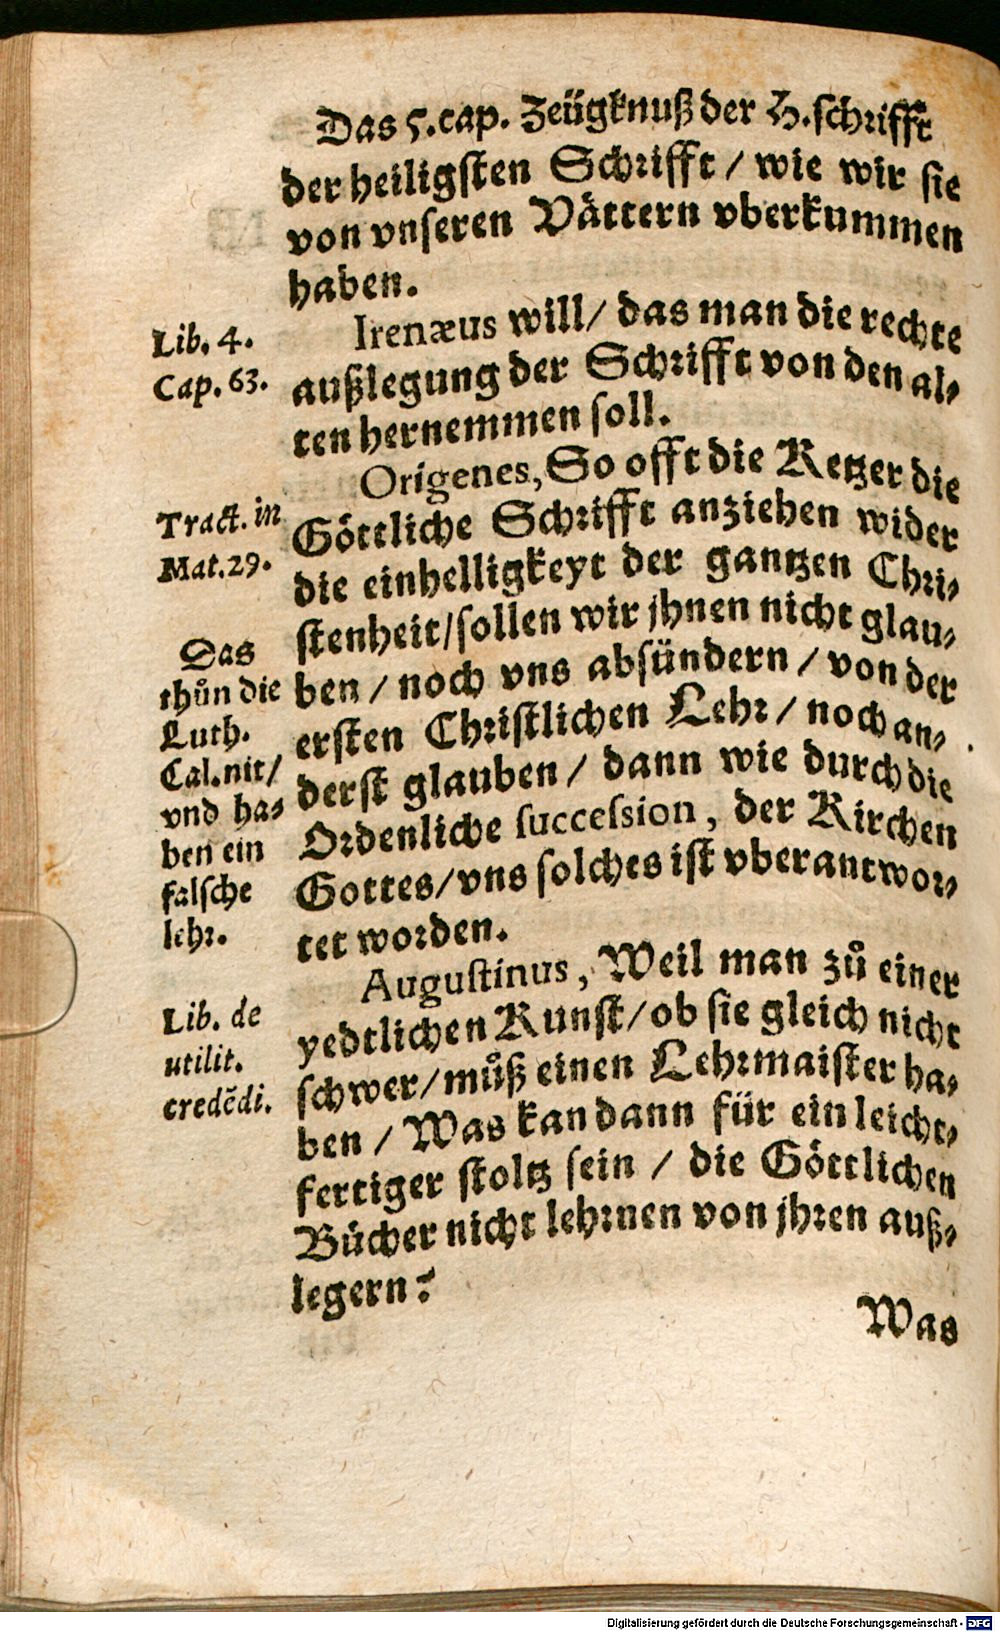 Das 5. cap. Zeügknuß der H. schrifft
der heiligsten Schrifft / wie wir sie
von vnseren Vättern vberkummen
haben.
Lib. 4.
Cap. 63.
Irenæus will / das man die rechte
außlegung der Schrifft von den al⸗
ten hernemmen soll.
Tract. in
Mat. 29.
Origenes, So offt die Ketzer die
Göttliche Schrifft anziehen wider
die einhelligkeyt der gantzen Chri⸗
stenheit / sollen wir jhnen nicht glau⸗
ben / noch vns absündern / von der
ersten Christlichen Lehr / noch an⸗
derst glauben / dann wie durch die
Ordenliche succession, der Kirchen
Gottes / vns solches ist vberantwor⸗
tet worden.
Das
thůn die
Luth.
Cal. nit /
vnd ha⸗
ben ein
falsche
lehr.
Lib. de
utilit.
credēdi.
Augustinus, Weil man zů einer
yedtlichen Kunst / ob sie gleich nicht
schwer / můß einen Lehrmaister ha⸗
ben / Was kan dann für ein leicht⸗
fertiger stoltz sein / die Göttlichen
Bücher nicht lehrnen von jhren auß⸗
legern?
Was
Digitalisierung gefördert durch die Deutsche Forschungsgemeinschaft - DFG